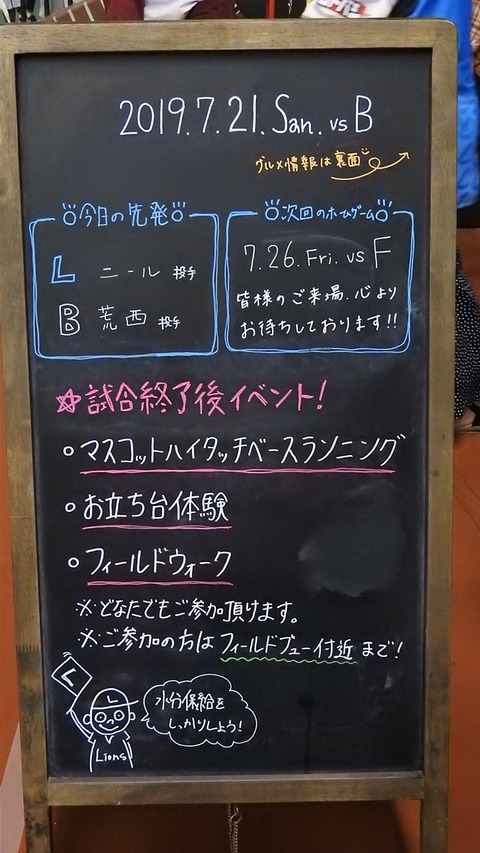 2019.7.21.San. vs B
グルメ情報は裏面
今日の先発
L ニール 投手
B 荒西 投手
次回のホームゲーム
7.26.Fri. vs F
皆様のご来場、心より
お待ちしております!!
☆試合終了後イベント!
○マスコットハイタッチベースランニング
○お立ち台体験
○フィールドウォーク
※どなたでもご参加頂けます。
※ご参加の方はフィールドブュー付近まで!
L
Lions
水分保給を
しっかりしよう!